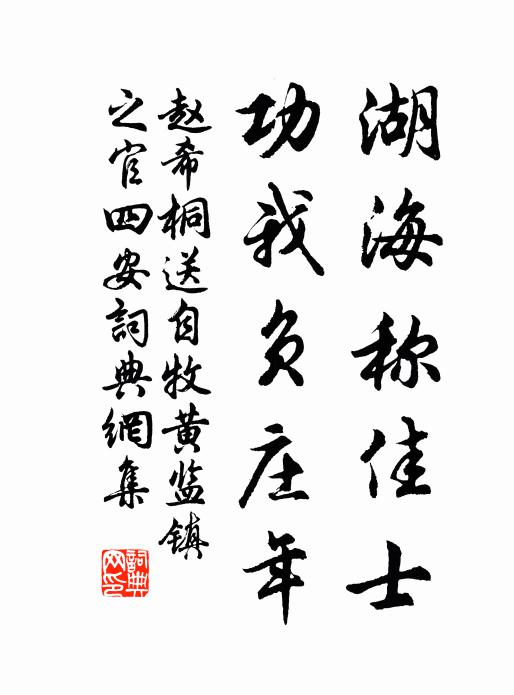 湖海称佳士
功我负庄年
赵希桐送自牧黄监镇
之官四安詞典網集
詞典網印